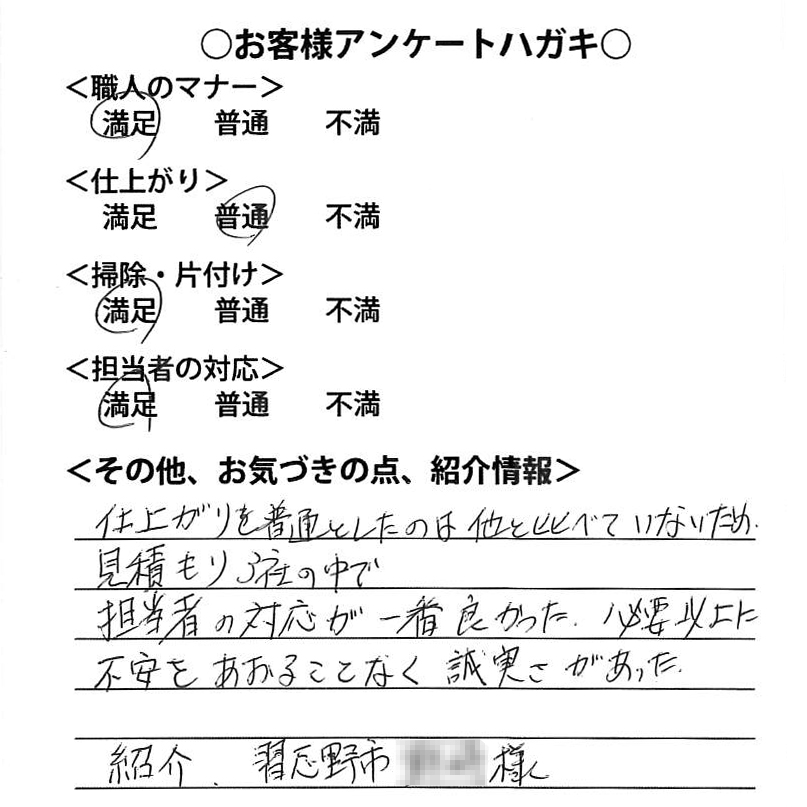 ○お客様アンケートハガキ○
＜職人のマナー＞
満足 普通 不満
＜仕上がり＞
満足 普通 不満
＜掃除・片付け＞
満足 普通 不満
＜担当者の対応＞
満足 普通 不満
＜その他、お気づきの点、紹介情報＞
仕上がりを普通としたのは他と比べていないため.
見積もり3社の中で
担当者の対応が一番良かった. 必要以上に
不安をあおることなく誠実さがあった.
紹介. 習志野市 様